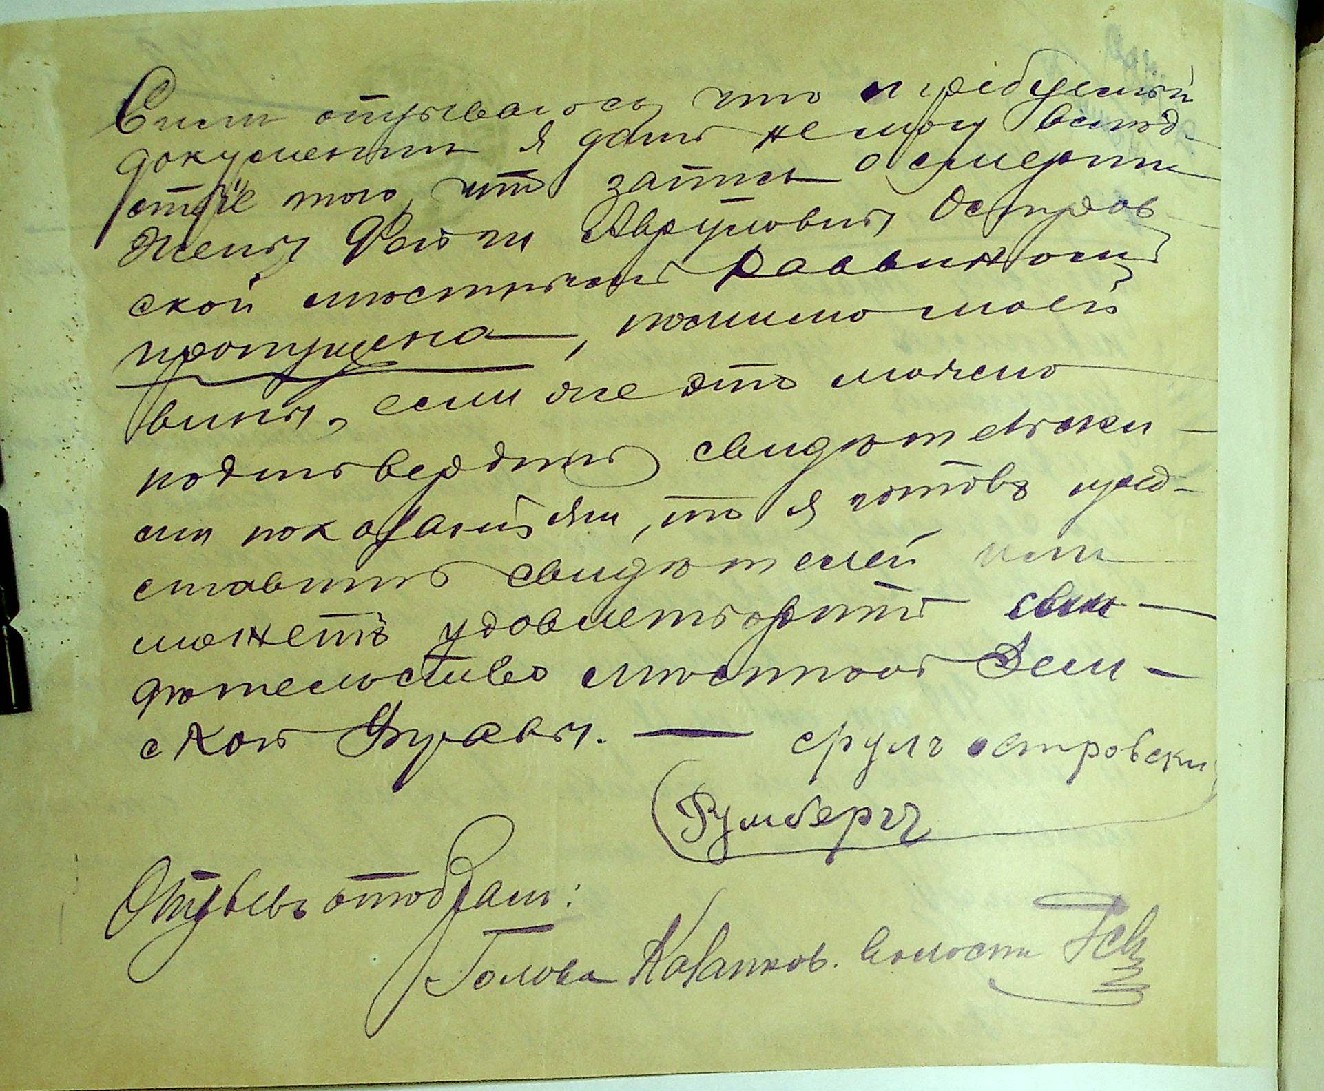 Симъ отзываюсь, что и требуемый
документъ я дать не могу вслѣд-
ствіе того, что запись о смерти
жены Фейги Аврумовны Островс-
ской мѣстнымъ Раввиномъ
пропущена, помимо моей
вины, если же это можно
подтвердить свидѣтельски-
ми показаніями, то я готовъ пред-
ставить свидѣтелей или
можетъ удовлетворить сви-
дѣтельство мѣстной Зем-
ской Управы. — Срулъ Островски
Румбергъ
Отзывъ отобралъ:
Голова Казанков. Волости